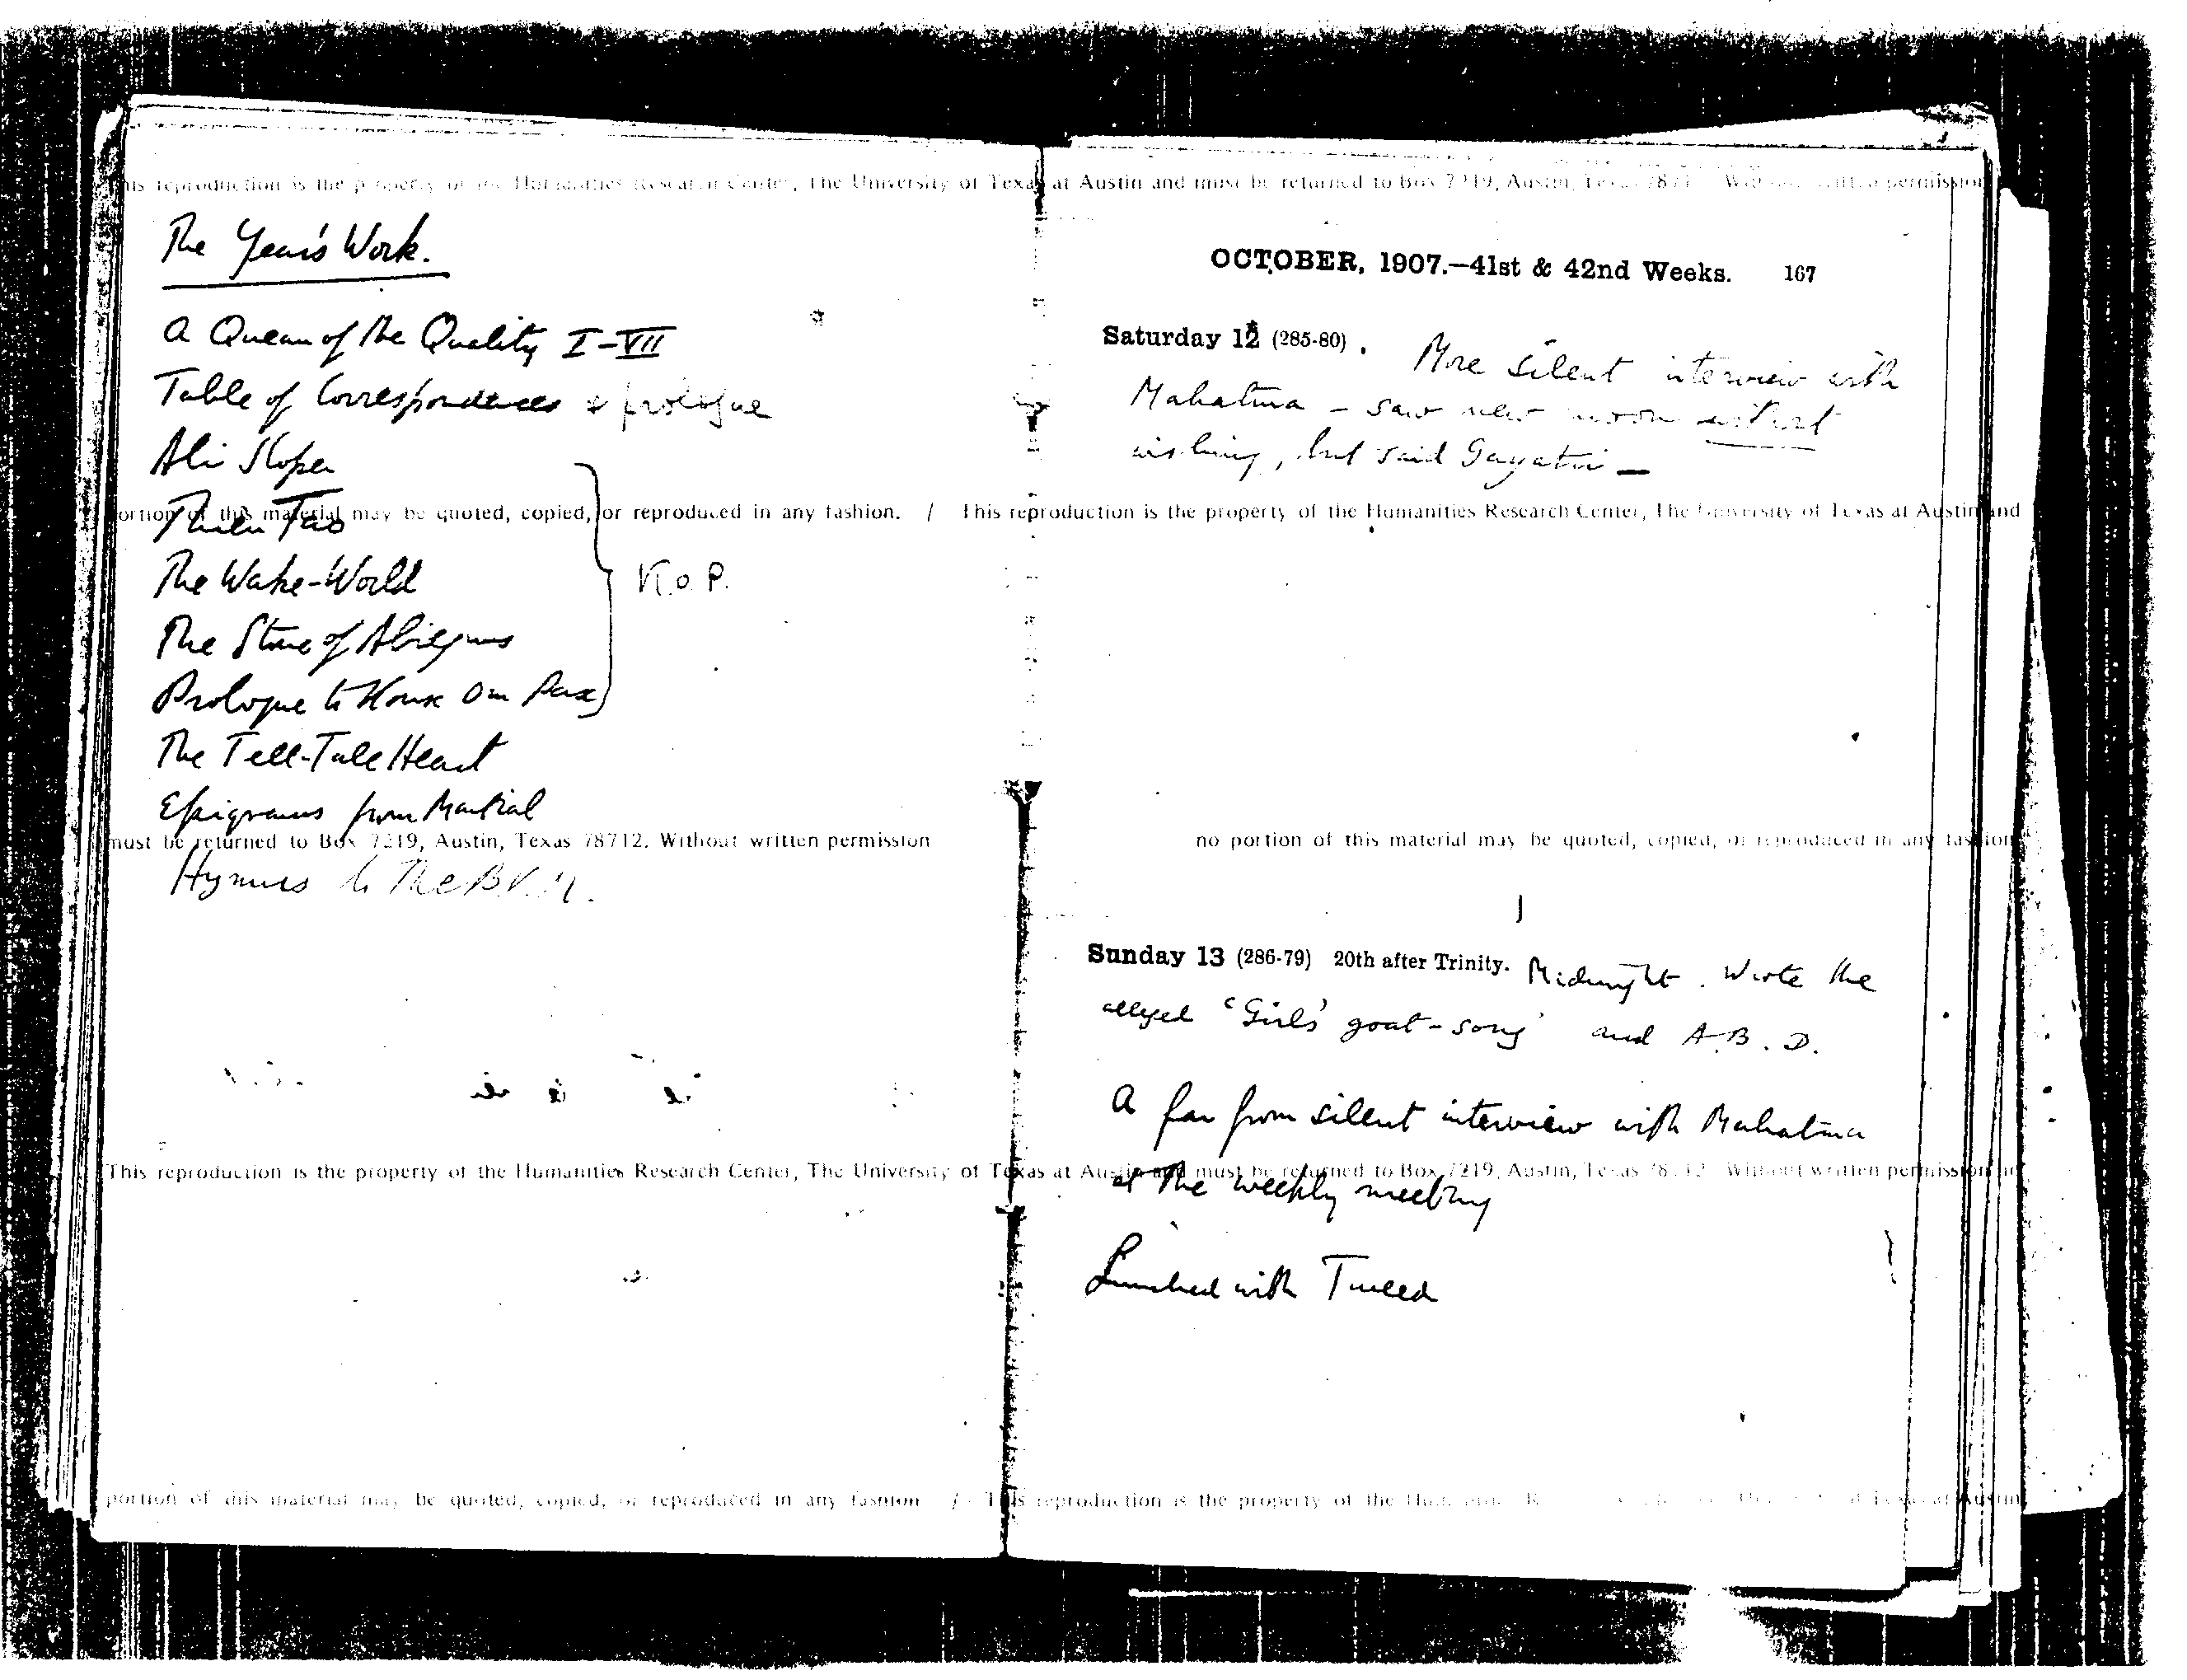 This reproduction is the property of the Humanities Research Center, The University of Texas at Austin and must be returned to Box 7219, Austin, Texas 78712. Without written permission
The Year's Work.
A Quean of the Quality I-VII
Table of Correspondences & prologue
Ali Sloper
Thien Tao
The Wake-World
The Stone of Abiegnus
Prologue to Konx Om Pax
K.o.P.
The Tell-Tale Heart
Epigrams from Martial
Hymns to the B.V.M.
portion of this material may be quoted, copied, or reproduced in any fashion. / This reproduction is the property of the Humanities Research Center, The University of Texas at Austin and
must be returned to Box 7219, Austin, Texas 78712. Without written permission
OCTOBER, 1907.—41st & 42nd Weeks. 167
Saturday 12 (285-80). More silent interview with
Mahatma - saw new moon without
wishing, but said Gayatri —
no portion of this material may be quoted, copied, or reproduced in any fashion
Sunday 13 (286-79) 20th after Trinity. Midnight. Wrote the
alleged 'Girls' goat-song' and A.B.D.
A far from silent interview with Mahatma
at the weekly meeting
Lunched with Tweed
This reproduction is the property of the Humanities Research Center, The University of Texas at Austin and must be returned to Box 7219, Austin, Texas 78712. Without written permission
portion of this material may be quoted, copied, or reproduced in any fashion / This reproduction is the property of the